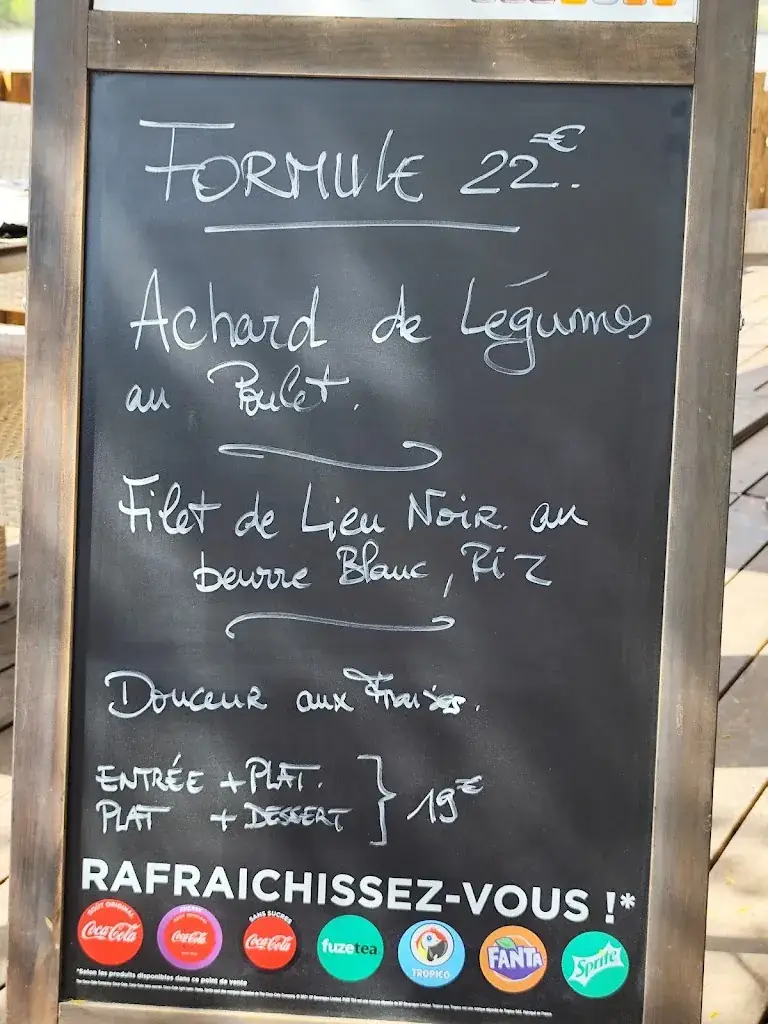 FORMULE 22€.
Achard de Légumes
au Poulet.
Filet de Lieu Noir au
beurre Blanc, Riz
Douceur aux Fraises.
ENTRÉE + PLAT.
PLAT + DESSERT } 19€
RAFRAICHISSEZ-VOUS !*
GOÛT ORIGINAL Coca-Cola
CHERRY Coca-Cola
SANS SUCRES Coca-Cola
fuzetea
TROPICO
FANTA
Sprite
*Selon les produits disponibles dans ce point de vente